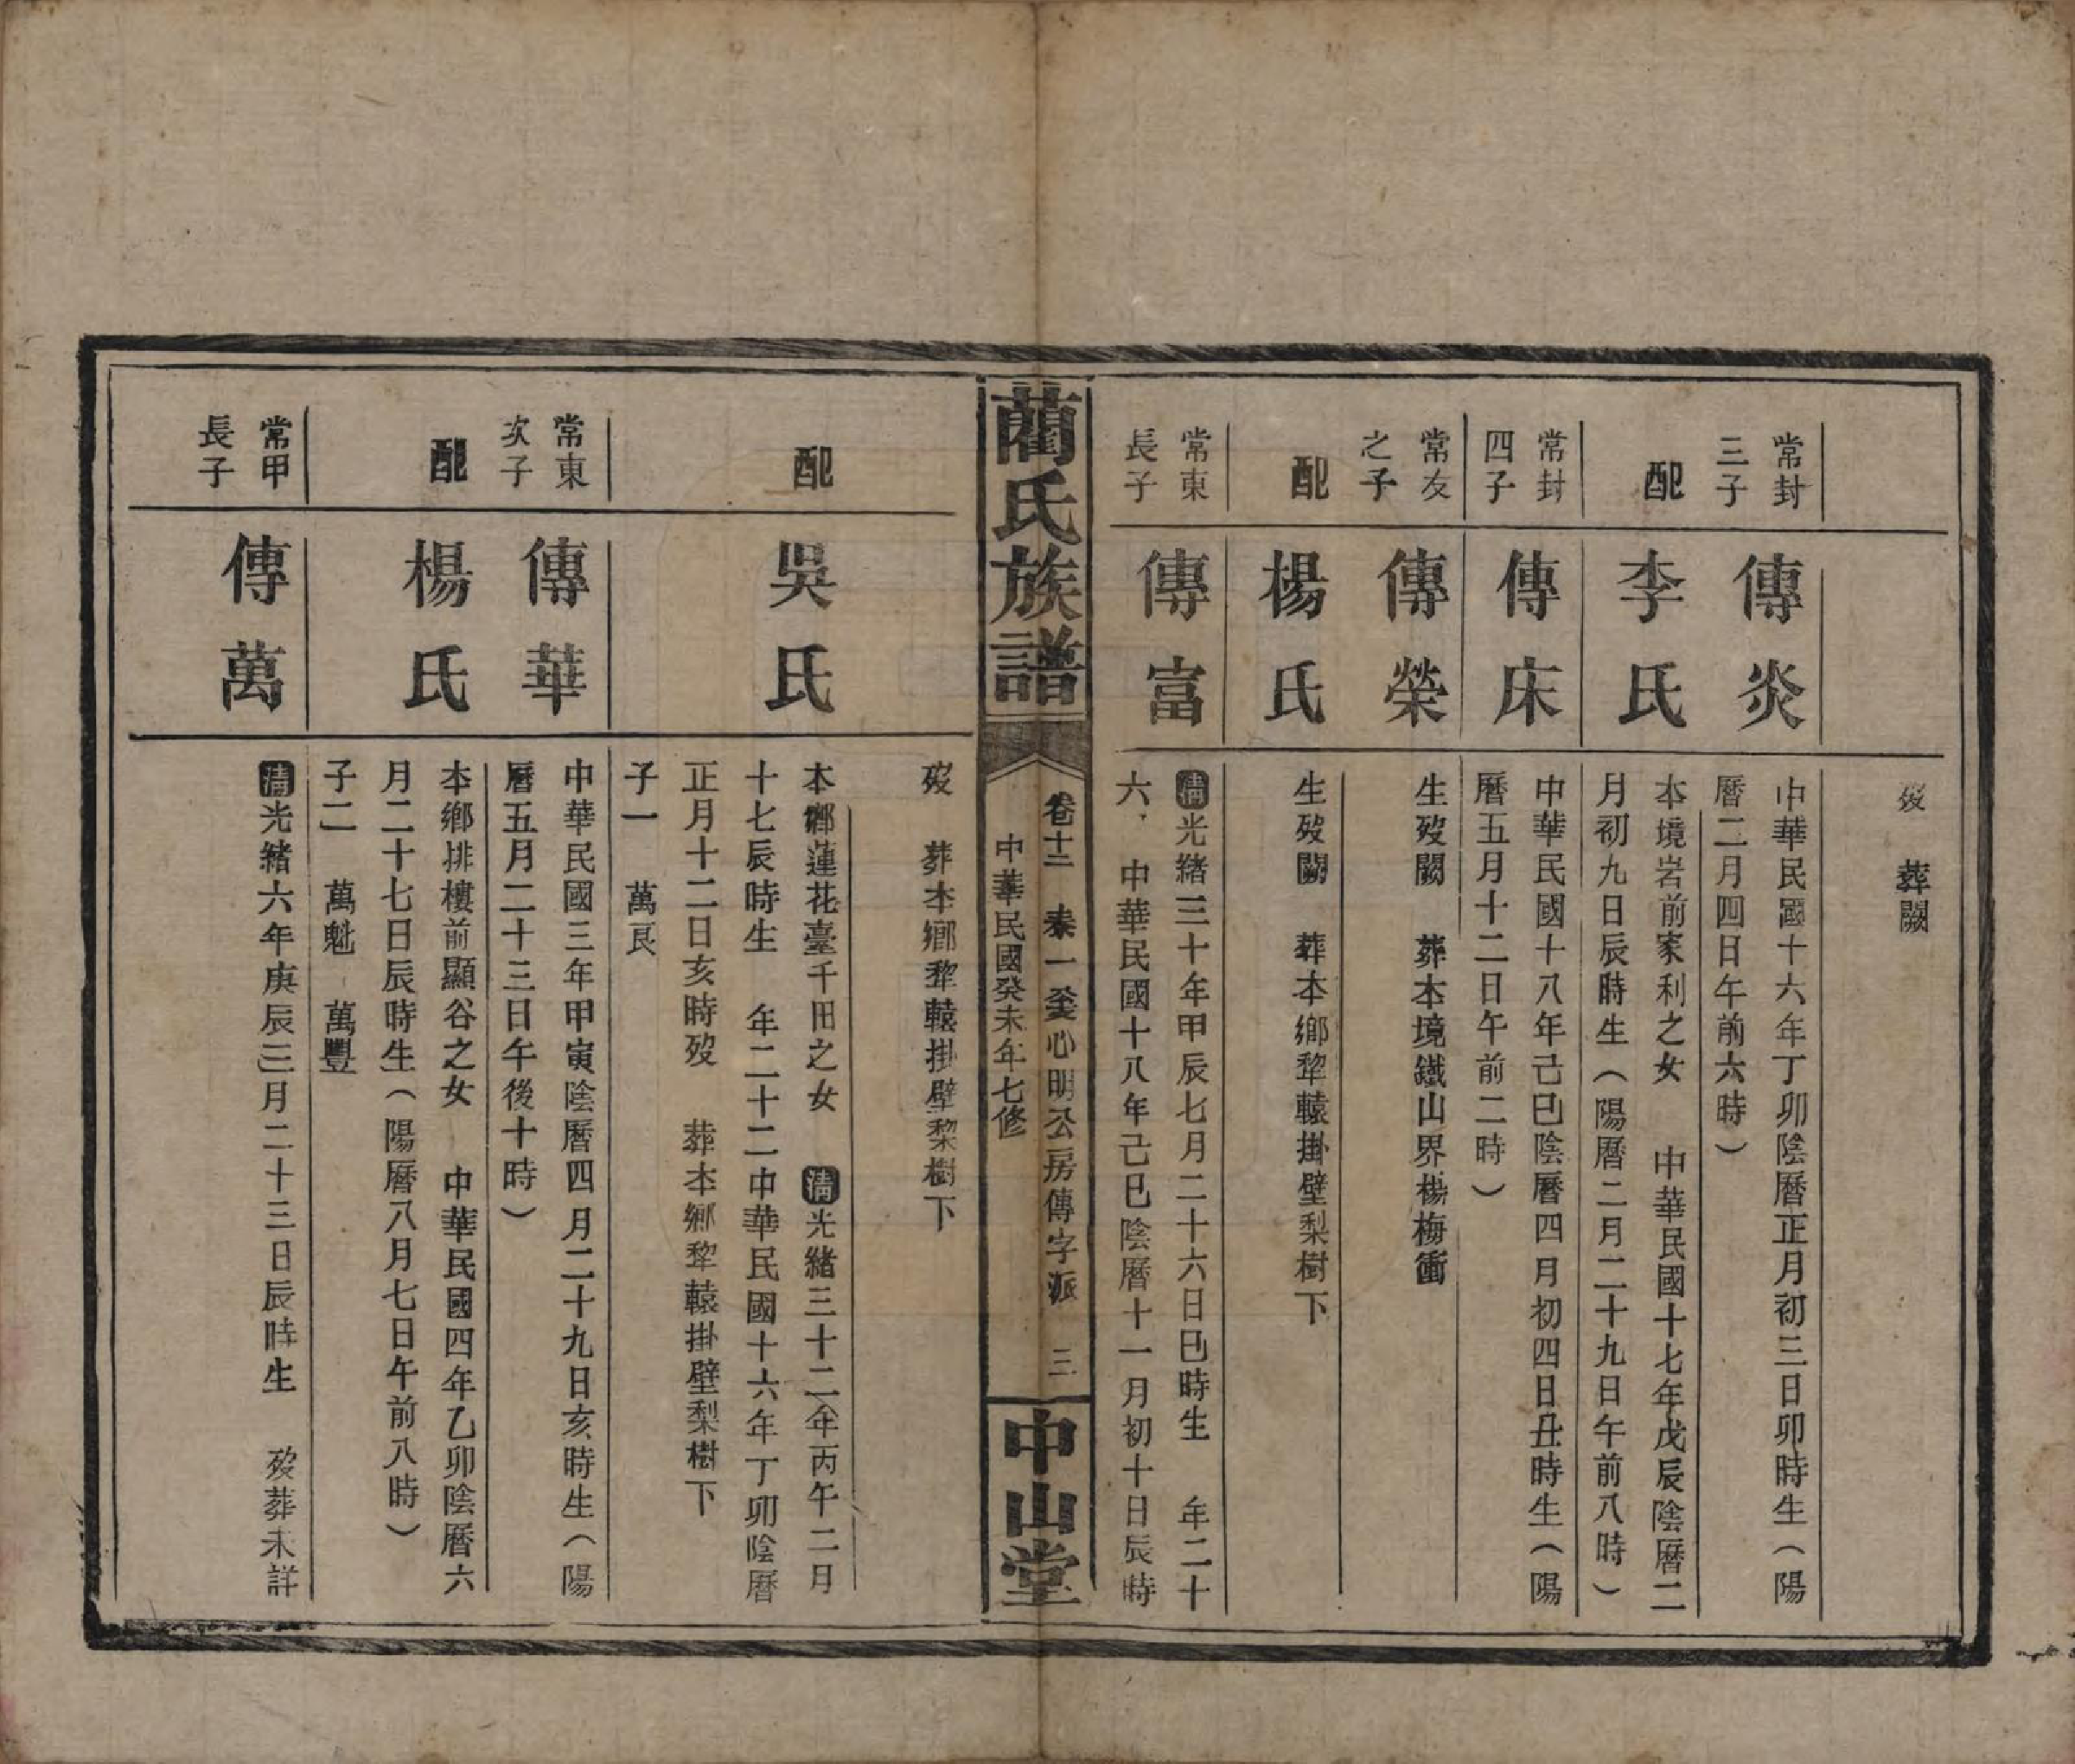 歿　葬闕
常封三子
傳炎
中華民國十六年丁卯陰曆正月初三日卯時生（陽
曆二月四日午前六時）
配
李氏
本境岩前家利之女　中華民國十七年戊辰陰曆二
月初九日辰時生（陽曆二月二十九日午前八時）
常封四子
傳床
中華民國十八年己巳陰曆四月初四日丑時生（陽
曆五月十二日午前二時）
常友之子
傳榮
生歿闕　葬本境鐵山界楊梅衝
配
楊氏
生歿闕　葬本鄉犂轅掛壁梨樹下
常東長子
傳富
清光緒三十年甲辰七月二十六日巳時生　年二十
六　中華民國十八年己巳陰曆十一月初十日辰時
藺氏族譜
卷十二　泰一釜心明公房傳字派　三
中華民國癸未年七修
中山堂
歿　葬本鄉犂轅掛壁梨樹下
配
吳氏
本鄉蓮花臺千田之女　清光緒三十二年丙午二月
十七辰時生　年二十二中華民國十六年丁卯陰曆
正月十二日亥時歿　葬本鄉犂轅掛壁梨樹下
子一　萬良
常東次子
傳華
中華民國三年甲寅陰曆四月二十九日亥時生（陽
曆五月二十三日午後十時）
配
楊氏
本鄉排樓前顯谷之女　中華民國四年乙卯陰曆六
月二十七日辰時生（陽曆八月七日午前八時）
子二　萬魁　萬豐
常甲長子
傳萬
清光緒六年庚辰三月二十三日辰時生　歿葬未詳